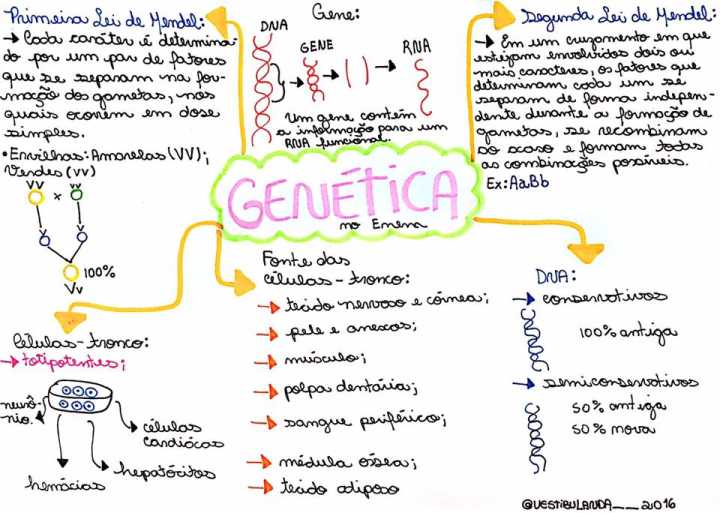 Primeira Lei de Mendel:
→ Cada caráter é determina-
do por um par de fatores
que se separam na for-
mação dos gametas, nos
quais ocorrem em dose
simples.
• Ervilhas: Amarelas (VV);
Verdes (vv)
VV × vv
100%
Vv
Gene:
DNA
GENE
RNA
Um gene contém
a informação para um
RNA funcional.
Segunda Lei de Mendel:
→ Em um cruzamento em que
estejam envolvidos dois ou
mais caracteres, os fatores que
determinam cada um se
separam de forma indepen-
dente durante a formação de
gametas, se recombinam
ao acaso e formam todas
as combinações possíveis.
Ex: AaBb
GENÉTICA
no Enem
Células-tronco:
→ totipotentes;
neurô-
nio.
células
cardíacas
hepatócitos
hemácias
Fonte das
células-tronco:
→ tecido nervoso e córnea;
→ pele e anexos;
→ músculo;
→ polpa dentária;
→ sangue periférico;
→ médula óssea;
→ tecido adiposo
DNA:
→ conservativos
100% antiga
→ semiconservativos
50% antiga
50% nova
@VESTIBULANDA__2016